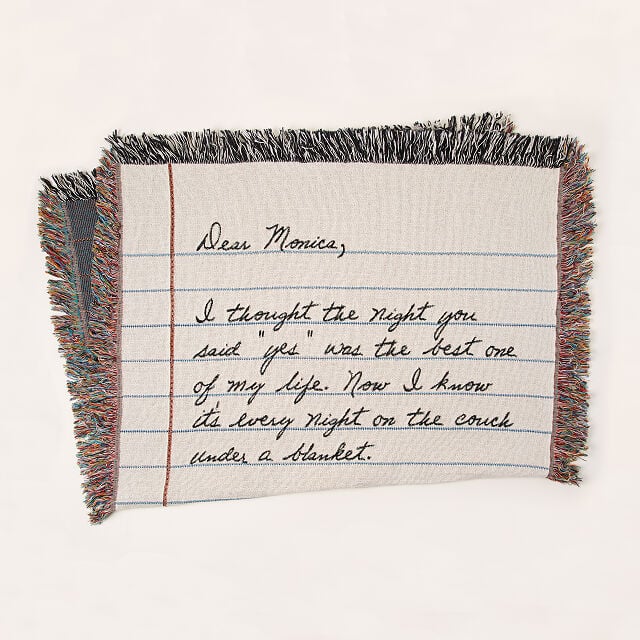 Dear Monica,
I thought the night you
said "yes" was the best one
of my life. Now I know
it's every night on the couch
under a blanket.